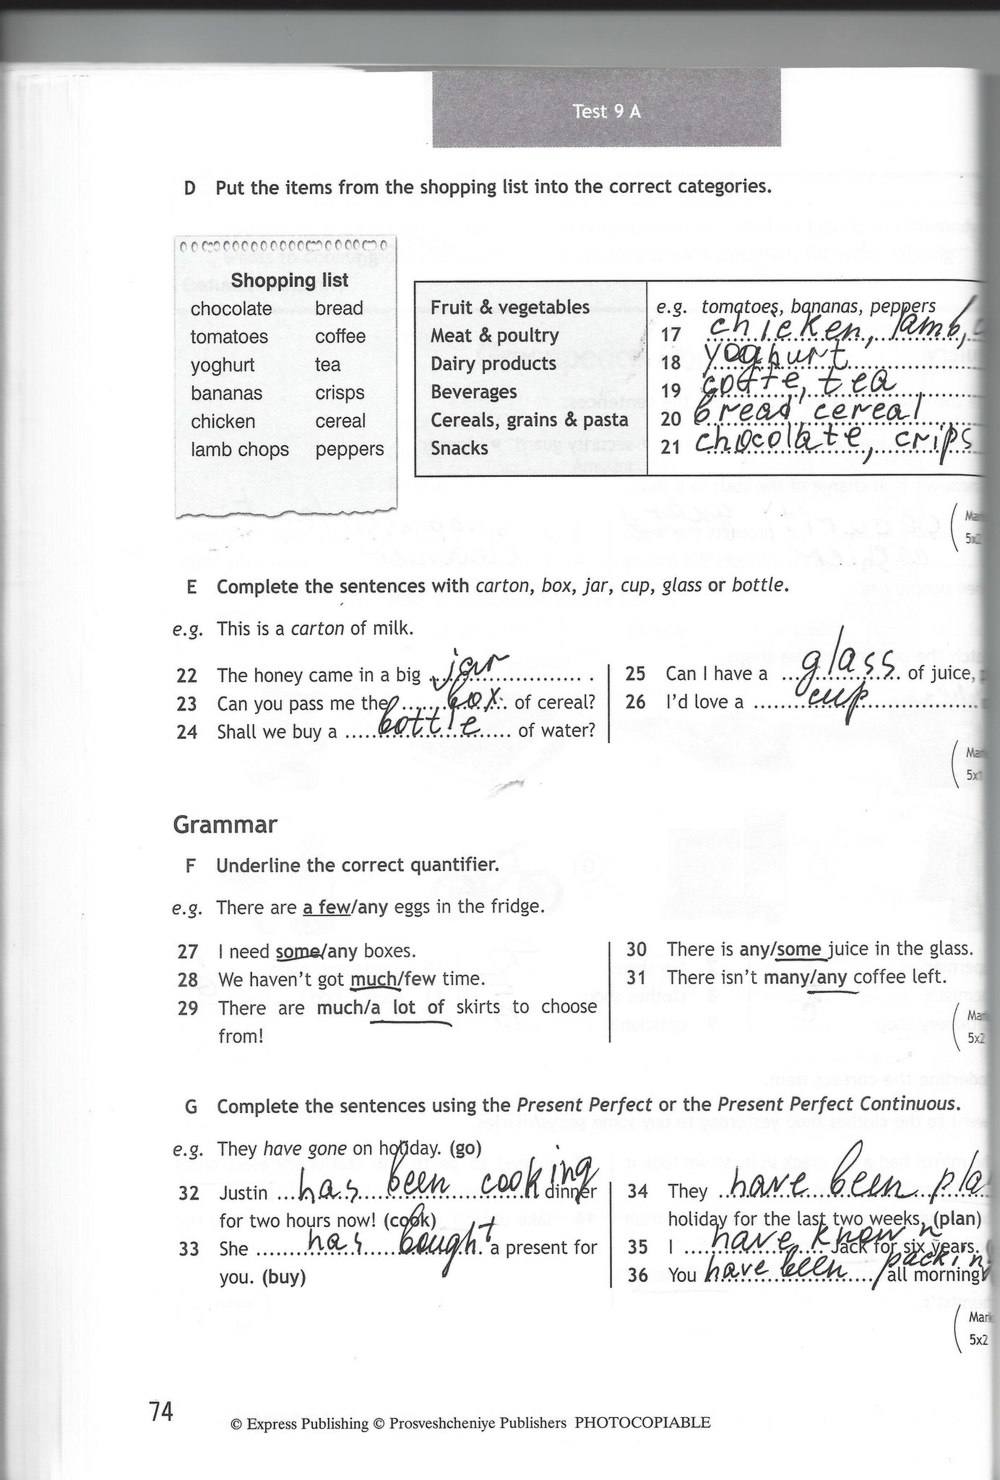 Test 9 A
D Put the items from the shopping list into the correct categories.
Shopping list
chocolate bread
tomatoes coffee
yoghurt tea
bananas crisps
chicken cereal
lamb chops peppers
Fruit & vegetables e.g. tomatoes, bananas, peppers
Meat & poultry 17 chicken, lamb,
Dairy products 18 yoghurt
Beverages 19 coffe, tea
Cereals, grains & pasta 20 bread cereal
Snacks 21 chocolate, crips
Mar
5x2
E Complete the sentences with carton, box, jar, cup, glass or bottle.
e.g. This is a carton of milk.
22 The honey came in a big jar .
23 Can you pass me the box of cereal?
24 Shall we buy a bottle of water?
25 Can I have a glass of juice,
26 I'd love a cup
Mar
5x1
Grammar
F Underline the correct quantifier.
e.g. There are a few/any eggs in the fridge.
27 I need some/any boxes.
28 We haven't got much/few time.
29 There are much/a lot of skirts to choose
from!
30 There is any/some juice in the glass.
31 There isn't many/any coffee left.
Mar
5x2
G Complete the sentences using the Present Perfect or the Present Perfect Continuous.
e.g. They have gone on holiday. (go)
32 Justin has been cooking dinner
for two hours now! (cook)
33 She has bought a present for
you. (buy)
34 They have been pla
holiday for the last two weeks. (plan)
35 I have known Jack for six years. (
36 You have been packin all morning
Mark
5x2
74
© Express Publishing © Prosveshcheniye Publishers PHOTOCOPIABLE